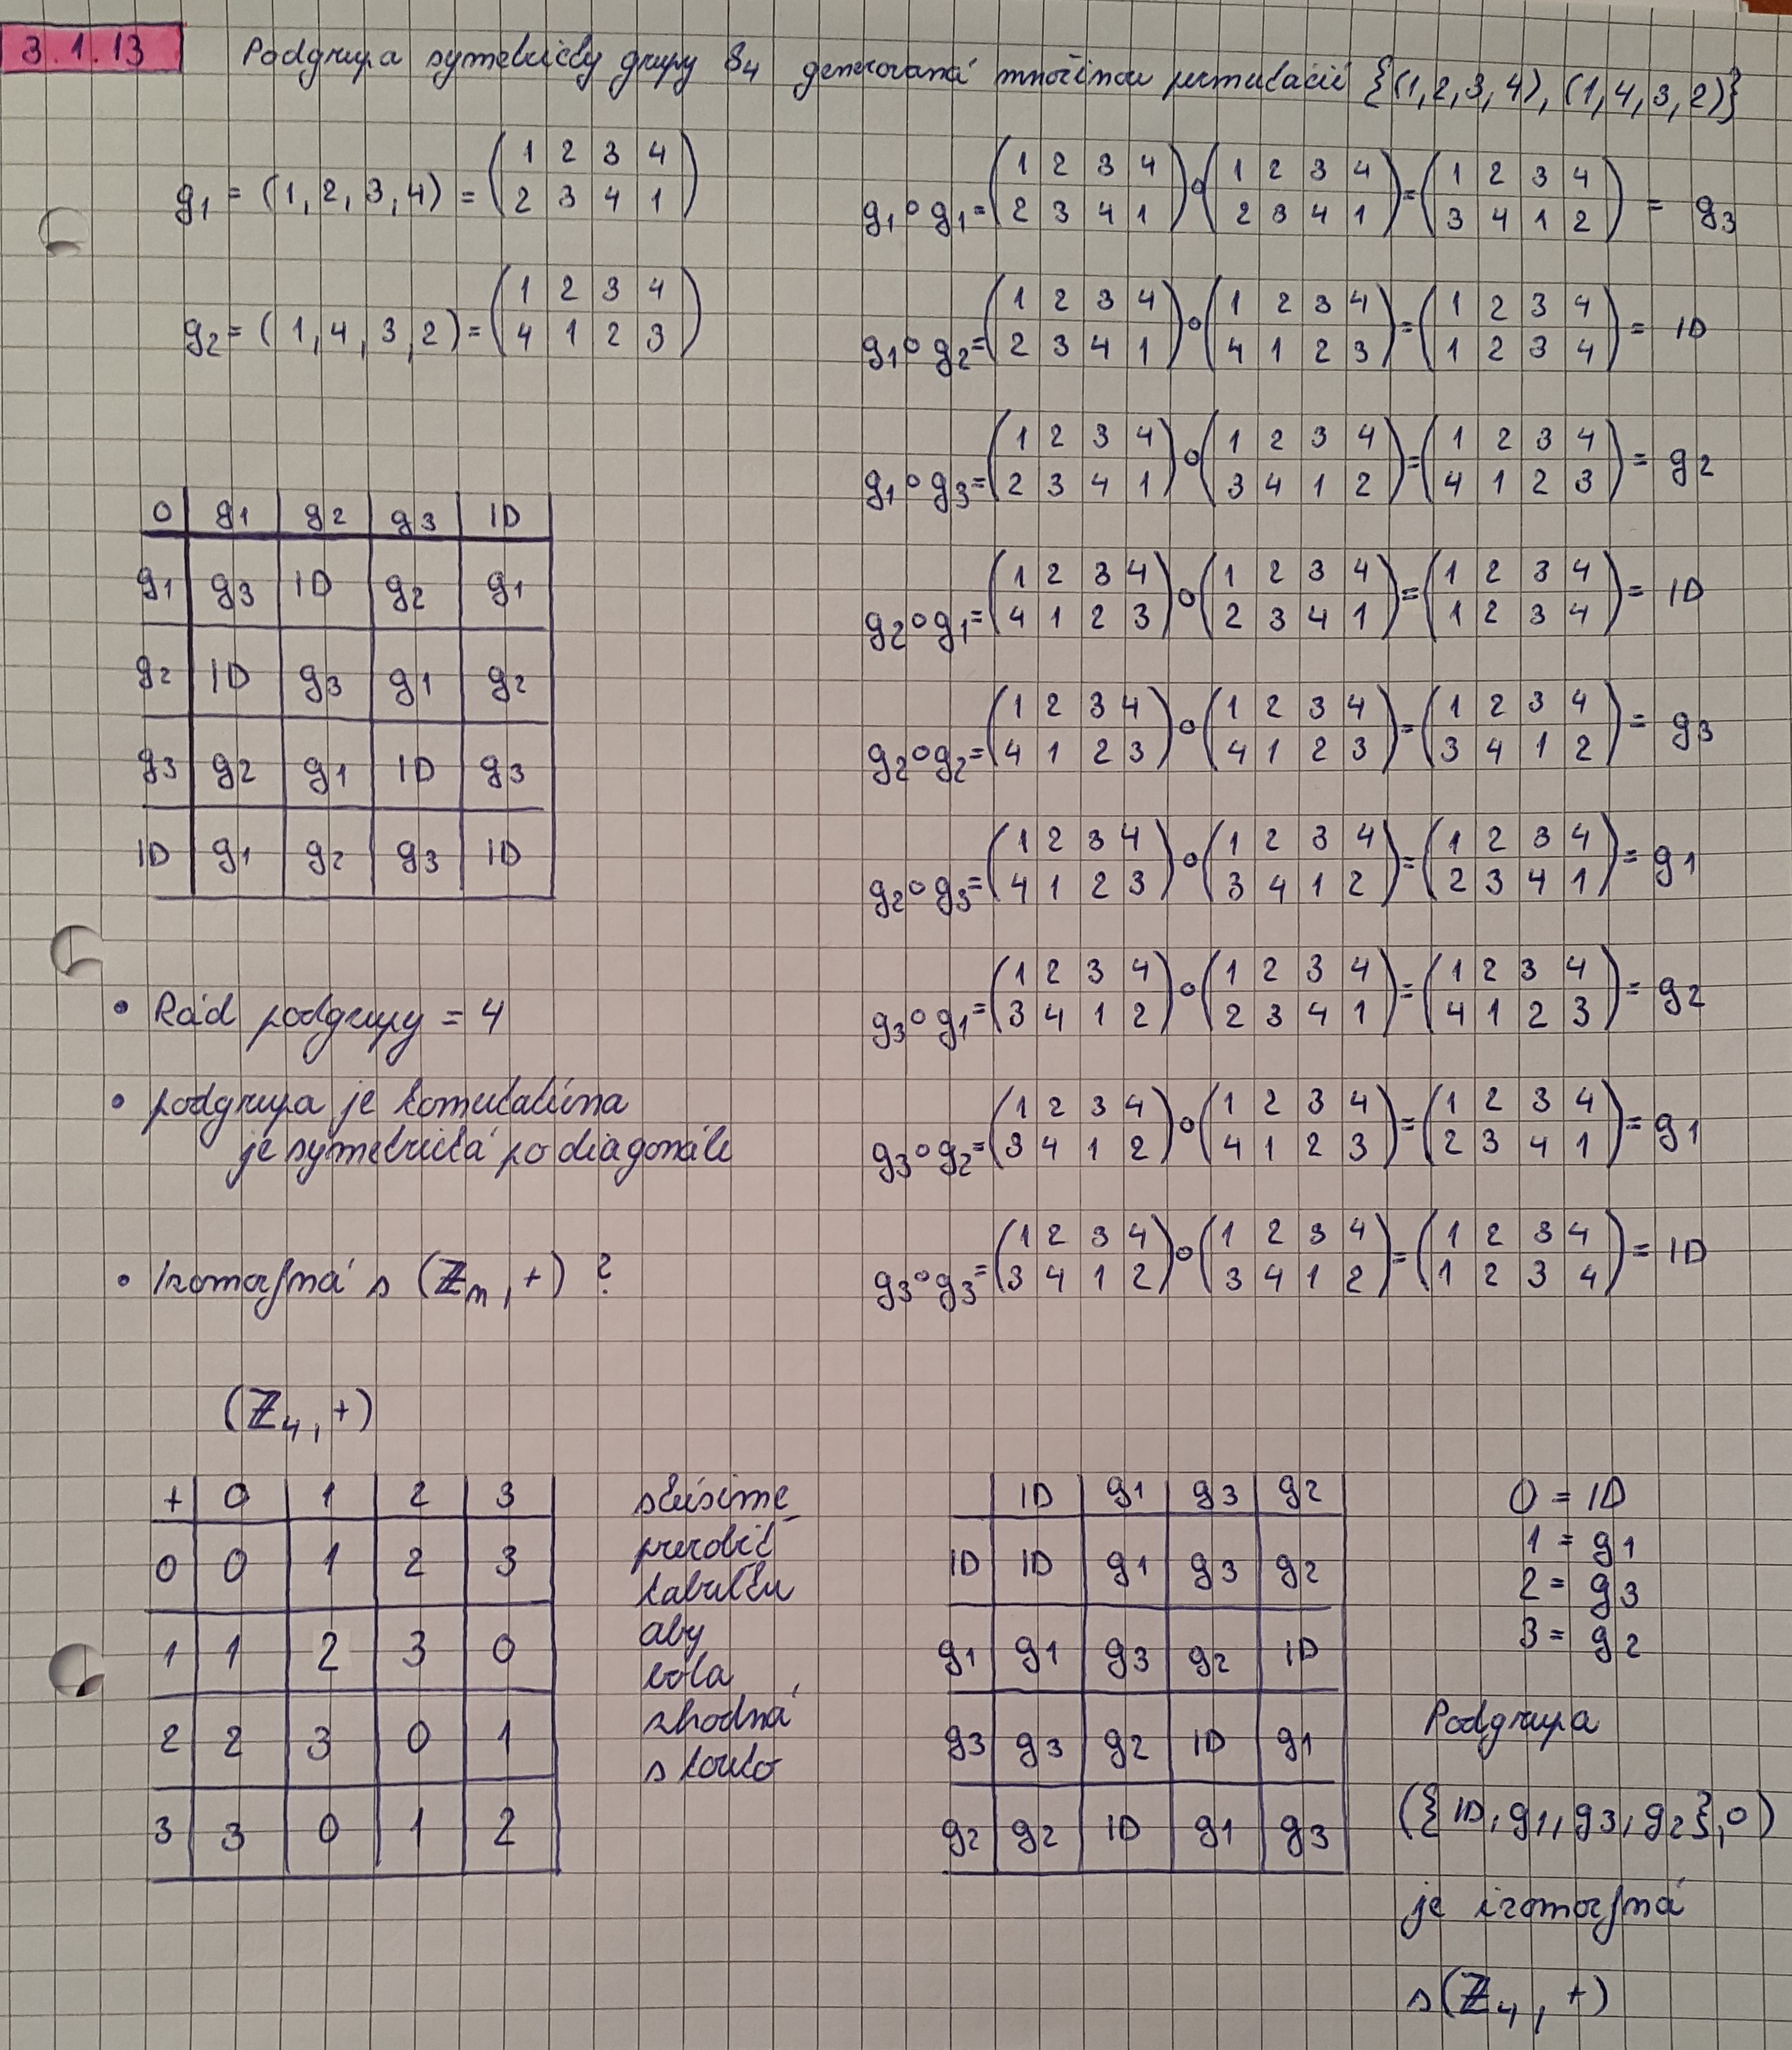 3.1.13 Podgrupa symetrickej grupy S4 generovaná množinou permutácií {(1,2,3,4), (1,4,3,2)}
g1 = (1,2,3,4) = (1 2 3 4
2 3 4 1)
g2 = (1,4,3,2) = (1 2 3 4
4 1 2 3)
o g1 g2 g3 ID
g1 g3 ID g2 g1
g2 ID g3 g1 g2
g3 g2 g1 ID g3
ID g1 g2 g3 ID
• Rád podgrupy = 4
• podgrupa je komutatívna
je symetrická po diagonále
• Izomorfná s (Zn, +) ?
g1 o g1 = (1 2 3 4
2 3 4 1) o (1 2 3 4
2 3 4 1) = (1 2 3 4
3 4 1 2) = g3
g1 o g2 = (1 2 3 4
2 3 4 1) o (1 2 3 4
4 1 2 3) = (1 2 3 4
1 2 3 4) = ID
g1 o g3 = (1 2 3 4
2 3 4 1) o (1 2 3 4
3 4 1 2) = (1 2 3 4
4 1 2 3) = g2
g2 o g1 = (1 2 3 4
4 1 2 3) o (1 2 3 4
2 3 4 1) = (1 2 3 4
1 2 3 4) = ID
g2 o g2 = (1 2 3 4
4 1 2 3) o (1 2 3 4
4 1 2 3) = (1 2 3 4
3 4 1 2) = g3
g2 o g3 = (1 2 3 4
4 1 2 3) o (1 2 3 4
3 4 1 2) = (1 2 3 4
2 3 4 1) = g1
g3 o g1 = (1 2 3 4
3 4 1 2) o (1 2 3 4
2 3 4 1) = (1 2 3 4
4 1 2 3) = g2
g3 o g2 = (1 2 3 4
3 4 1 2) o (1 2 3 4
4 1 2 3) = (1 2 3 4
2 3 4 1) = g1
g3 o g3 = (1 2 3 4
3 4 1 2) o (1 2 3 4
3 4 1 2) = (1 2 3 4
1 2 3 4) = ID
(Z4, +)
+ 0 1 2 3
0 0 1 2 3
1 1 2 3 0
2 2 3 0 1
3 3 0 1 2
skúsime
prerobiť
tabuľku
aby
bola
zhodná
s touto
ID g1 g3 g2
ID ID g1 g3 g2
g1 g1 g3 g2 ID
g3 g3 g2 ID g1
g2 g2 ID g1 g3
0 = ID
1 = g1
2 = g3
3 = g2
Podgrupa
({ID, g1, g3, g2}, o)
je izomorfná
s (Z4, +)